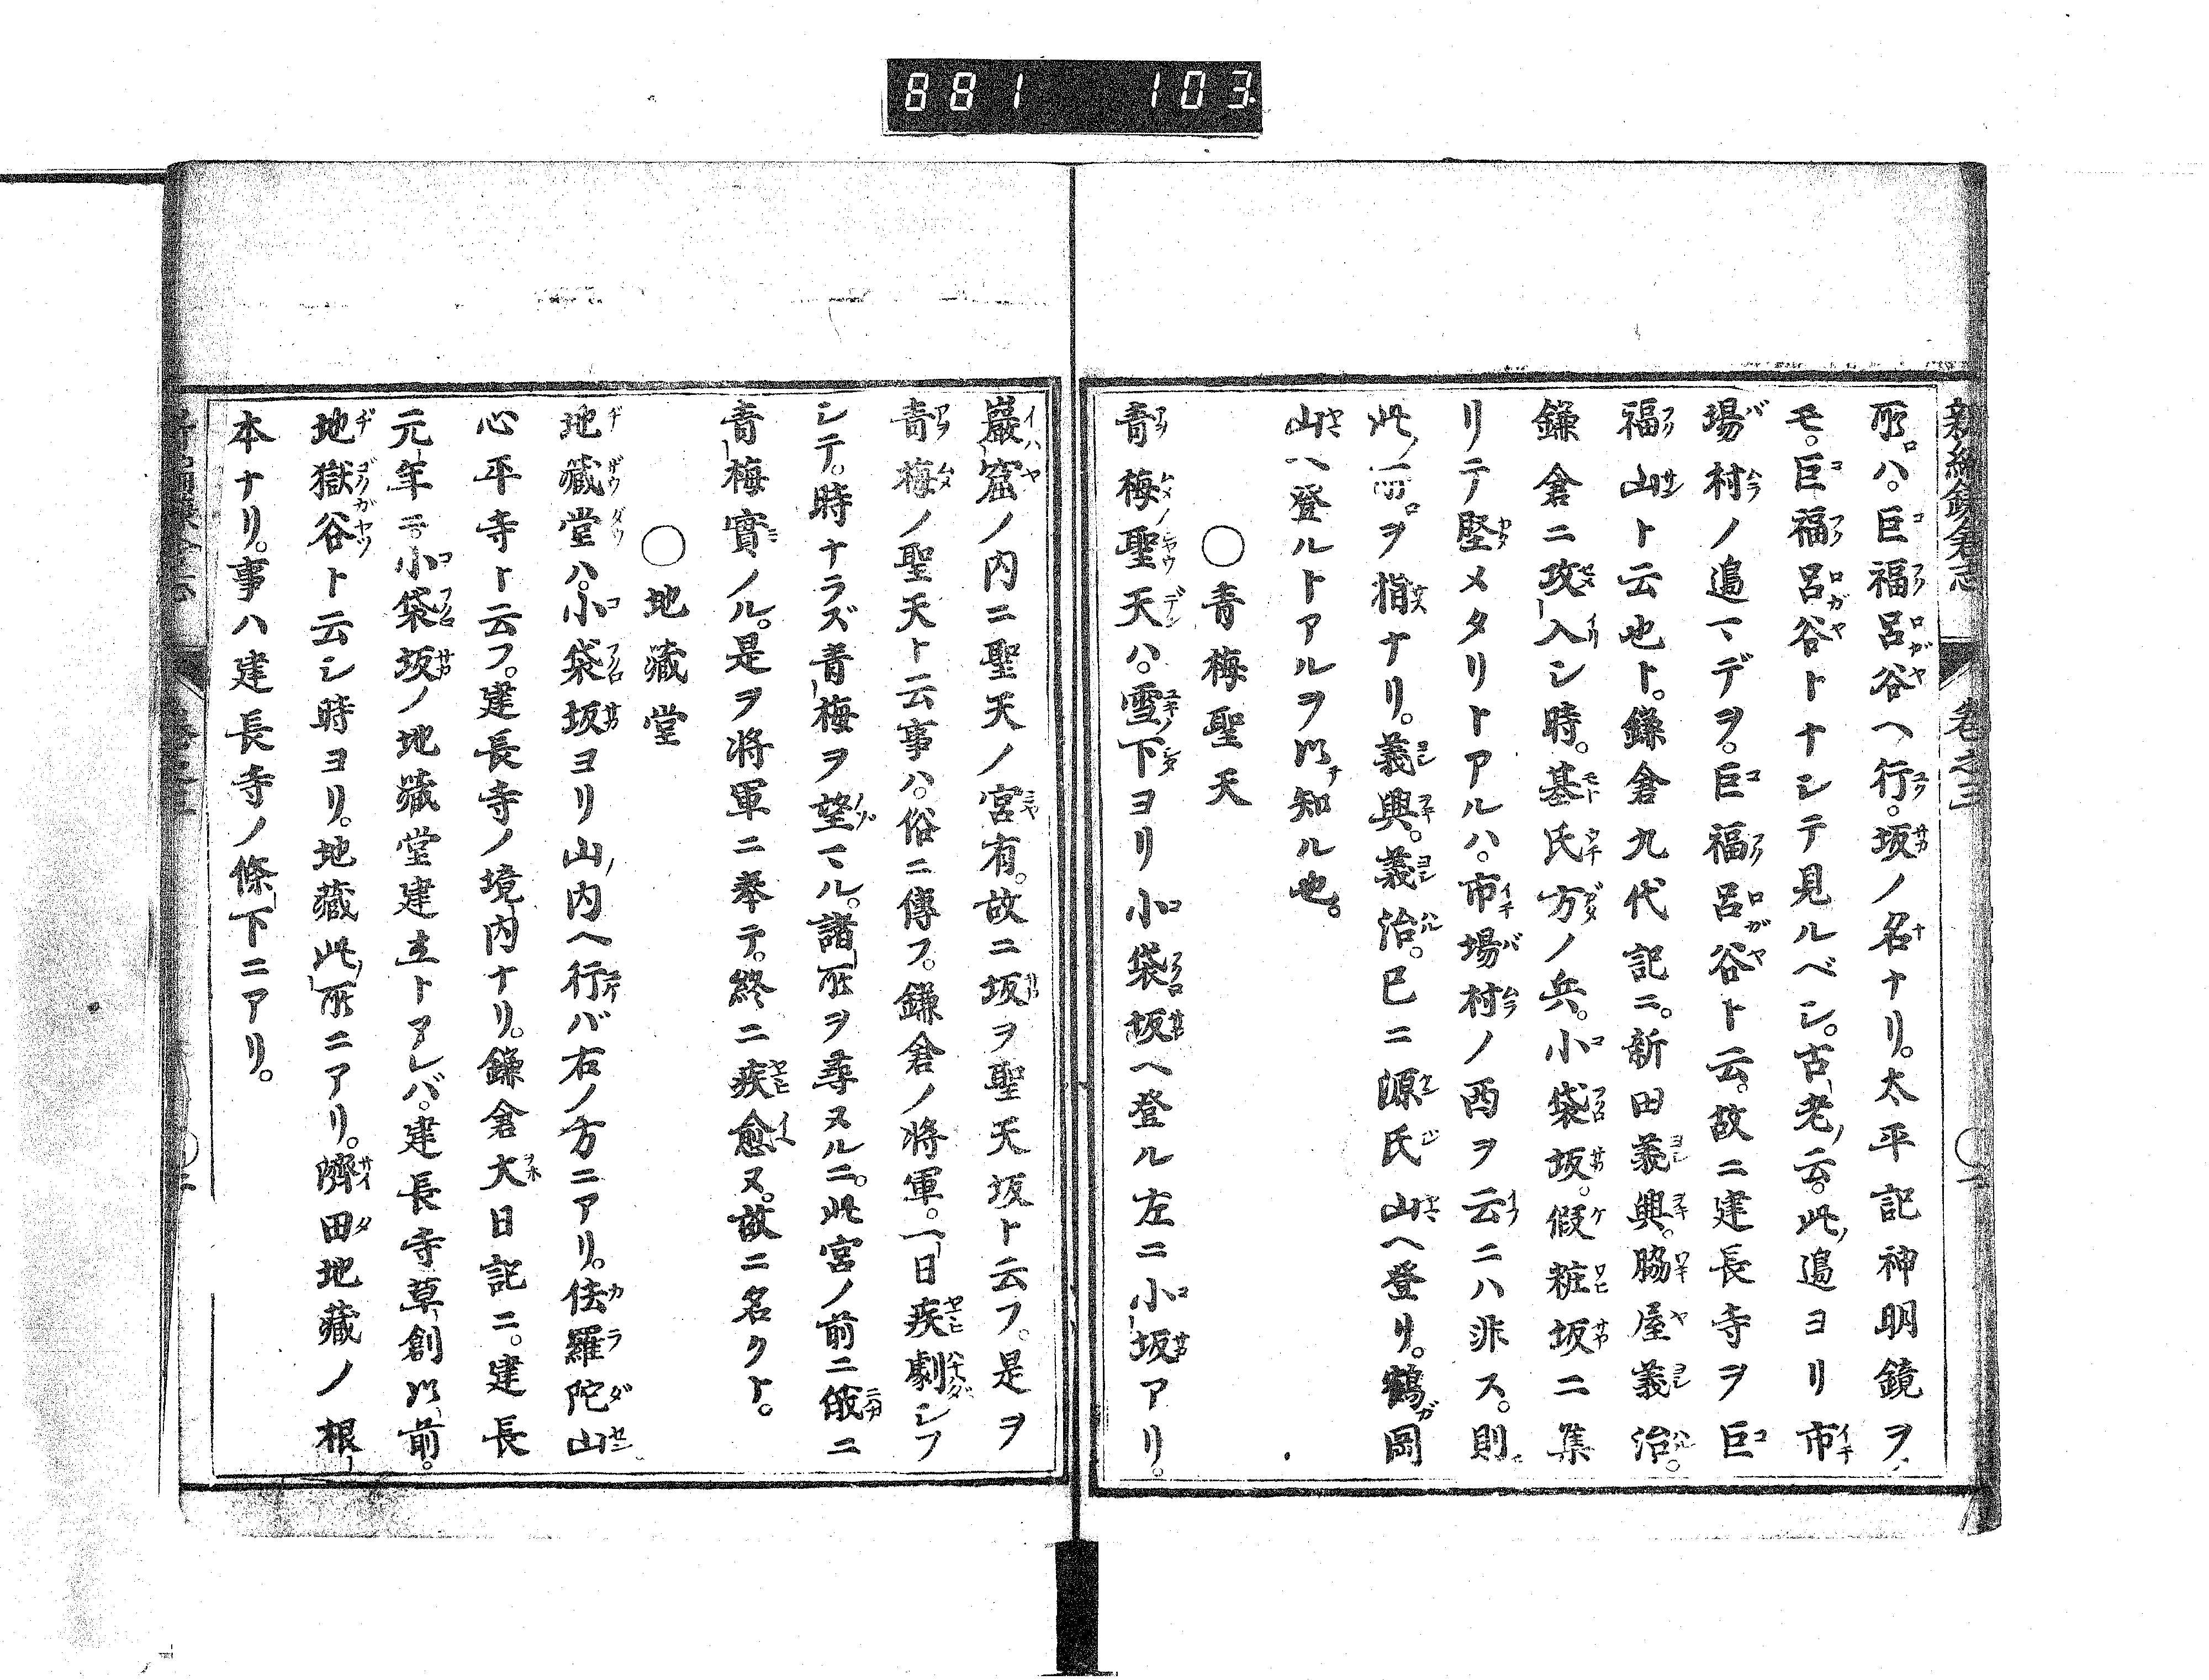 881 103
新編鎌倉志 卷之三
所ハ。巨福呂谷ヘ行。坂ノ名ナリ。太平記神明鏡ヲ
モ。巨福呂谷トナシテ見ルベシ。古老ノ云。此邊ヨリ市
場村ノ邉マデヲ。巨福呂谷ト云。故ニ建長寺ヲ巨
福山ト云也ト。鎌倉九代記ニ。新田義興。脇屋義治。
鎌倉ニ攻入シ時。基氏方ノ兵。小袋坂。假粧坂ニ集
リテ堅メタリトアルハ。市場村ノ西ヲ云ニハ非ス。則
此ノ所ヲ指ナリ。義興。義治。已ニ源氏山ヘ登リ。鶴岡
山ヘ登ルトアルヲ以テ知ル也。
○青梅聖天
青梅聖天ハ。雪下ヨリ小袋坂ヘ登ル左ニ小坂アリ。
巖窟ノ内ニ聖天ノ宮有。故ニ坂ヲ聖天坂ト云フ。是ヲ
青梅ノ聖天ト云事ハ。俗ニ傳フ。鎌倉ノ將軍。一日疾劇シフ
シテ。時ナラズ青梅ヲ望マル。諸所ヲ尋ヌルニ。此宮ノ前ニ俄ニ
青梅實ノル。是ヲ将軍ニ奉テ。終ニ疾愈ヌ。故ニ名クト。
○地藏堂
地藏堂ハ。小袋坂ヨリ山ノ内ヘ行バ右ノ方ニアリ。佉羅陀山
心平寺ト云フ。建長寺ノ境内ナリ。鎌倉大日記ニ。建長
元年ニ。小袋坂ノ地藏堂建立トアレバ。建長寺草創以前。
地獄谷ト云シ時ヨリ。地藏此ノ所ニアリ。隮田地藏ノ根
本ナリ。事ハ建長寺ノ條下ニアリ。